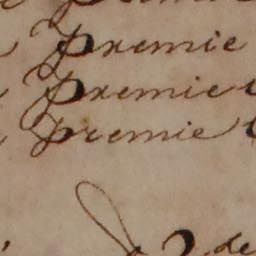 Premie
Premie
Premie
2 de